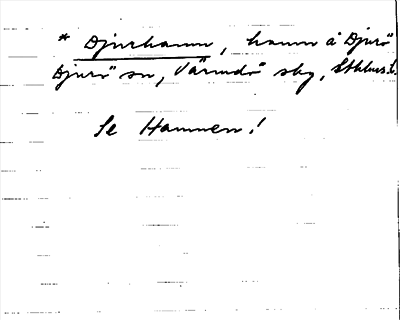 * Djurhamn, hamn å Djurö
Djurö sn, Värmdö skg, Sthlms l.
Se Hamnen!